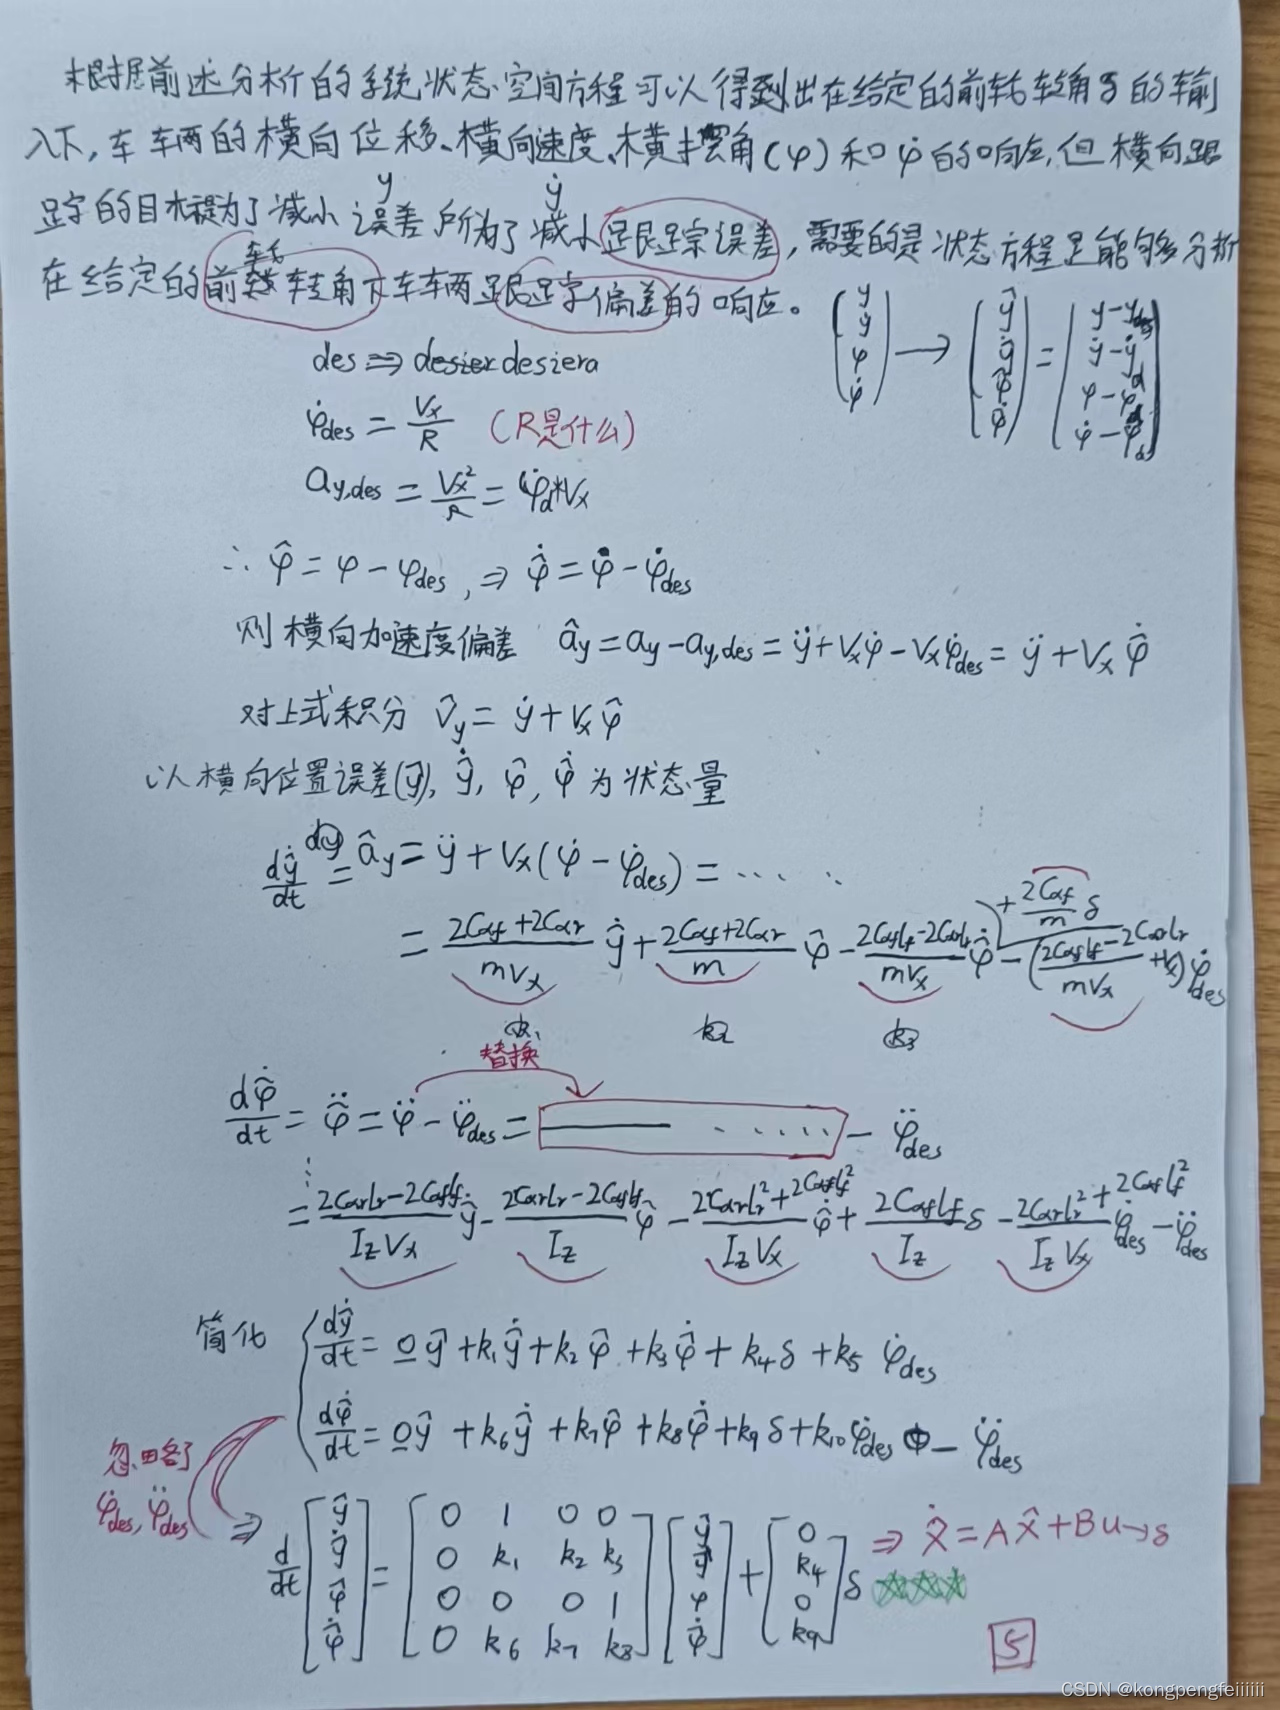 根据前述分析的系统状态空间方程可以得到出在给定的前轮转角δ的输
入下,车车辆的横向位移、横向速度、横摆角(φ)和φ̇的响应,但横向跟
y ẏ
踪的目标是为了减小误差所为了减小跟踪误差,需要的是状态方程是能够多分析
在给定的前轮转角下车车辆跟踪偏差的响应。
(y ẏ φ φ̇) → (ŷ ŷ̇ φ̂ φ̂̇) = (y-y_des ẏ-ẏ_d φ-φ_d φ̇-φ̇_d)
des ⇒ desier desiera
φ̇des = Vx/R (R是什么)
ay,des = Vx²/R = φ̇d*Vx
∴ φ̂ = φ-φdes, ⇒ φ̂̇ = φ̇-φ̇des
则横向加速度偏差 ây = ay-ay,des = ÿ+Vxφ̇-Vxφ̇des = ÿ+Vxφ̂̇
对上式积分 V̂y = ẏ+Vxφ̂
以横向位置误差(ŷ), ŷ̇, φ̂, φ̂̇为状态量
dŷ̇/dt = ây = ÿ+Vx(φ̇-φ̇des) = ......
= (2Cαf+2Cαr)/(mVx) ŷ̇ + (2Cαf+2Cαr)/m φ̂ - (2Cαflf-2Cαrlr)/(mVx) φ̂̇ + 2Cαf/m δ - ((2Cαflf-2Cαrlr)/(mVx)+Vx)φ̇des
k1 k2 k3
替换
dφ̂̇/dt = φ̂̈ = φ̈-φ̈des = ..... - φ̈des
= (2Cαrlr-2Cαflf)/(IzVx) ŷ̇ - (2Cαrlr-2Cαflf)/Iz φ̂ - (2Cαrlr²+2Cαflf²)/(IzVx) φ̂̇ + 2Cαflf/Iz δ - (2Cαrlr²+2Cαflf²)/(IzVx) φ̇des - φ̈des
简化 dŷ̇/dt = 0ŷ+k1ŷ̇+k2φ̂+k3φ̂̇+k4δ+k5φ̇des
dφ̂̇/dt = 0ŷ+k6ŷ̇+k7φ̂+k8φ̂̇+k9δ+k10φ̇des - φ̈des
忽略了
φ̇des, φ̈des
⇒ d/dt [ŷ ŷ̇ φ̂ φ̂̇] = [0 1 0 0; 0 k1 k2 k3; 0 0 0 1; 0 k6 k7 k8] [ŷ ŷ̇ φ φ̇] + [0 k4 0 k9] δ ⇒ Ẋ̂=AX̂+Bu→δ
5
CSDN @kongpengfeiiiiii